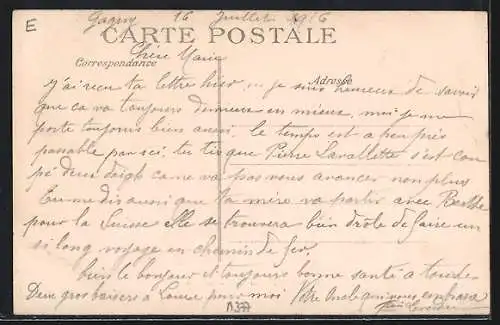 E
Gagny 16 Juillet 1916
CARTE POSTALE
Chère Marie
Correspondance
Adresse
J'ai reçu ta lettre hier, et je suis heureux de savoir
que ca va toujours de mieux en mieux, moi je me
porte toujours bien aussi, le temps est a peu près
passable par ici, tu dis que Pierre Lavallette s'est cou
pé deux doigts ca ne va pas vous avancer non plus
Tu me dis aussi que ta mère va partir avec Berthe
pour la Suisse elle se trouvera bien drole de faire un
si long voyage en chemin de fer.
bien le bonjour et toujours bonne santé a toutes
Deux gros baisers a Louise pour moi Votre Oncle qui vous embrasse
A377